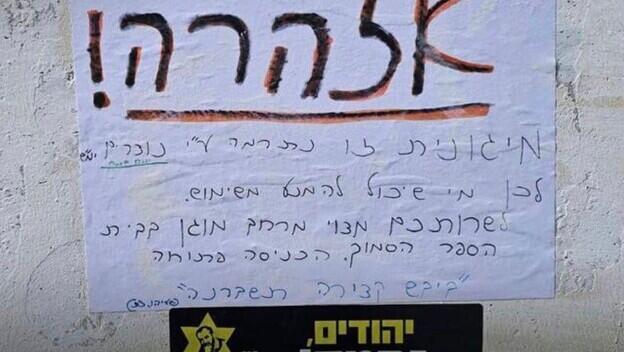 אזהרה!
מיגונית זו נתרמה ע"י נוצרים ימ"ש
לכן מי שיכול להמנע משימוש.
לשרותכם מצוי מרחב מוגן בבית
הספר הסמוך. הכניסה פתוחה
"ביבש קצירה תשברנה"
יהודים,